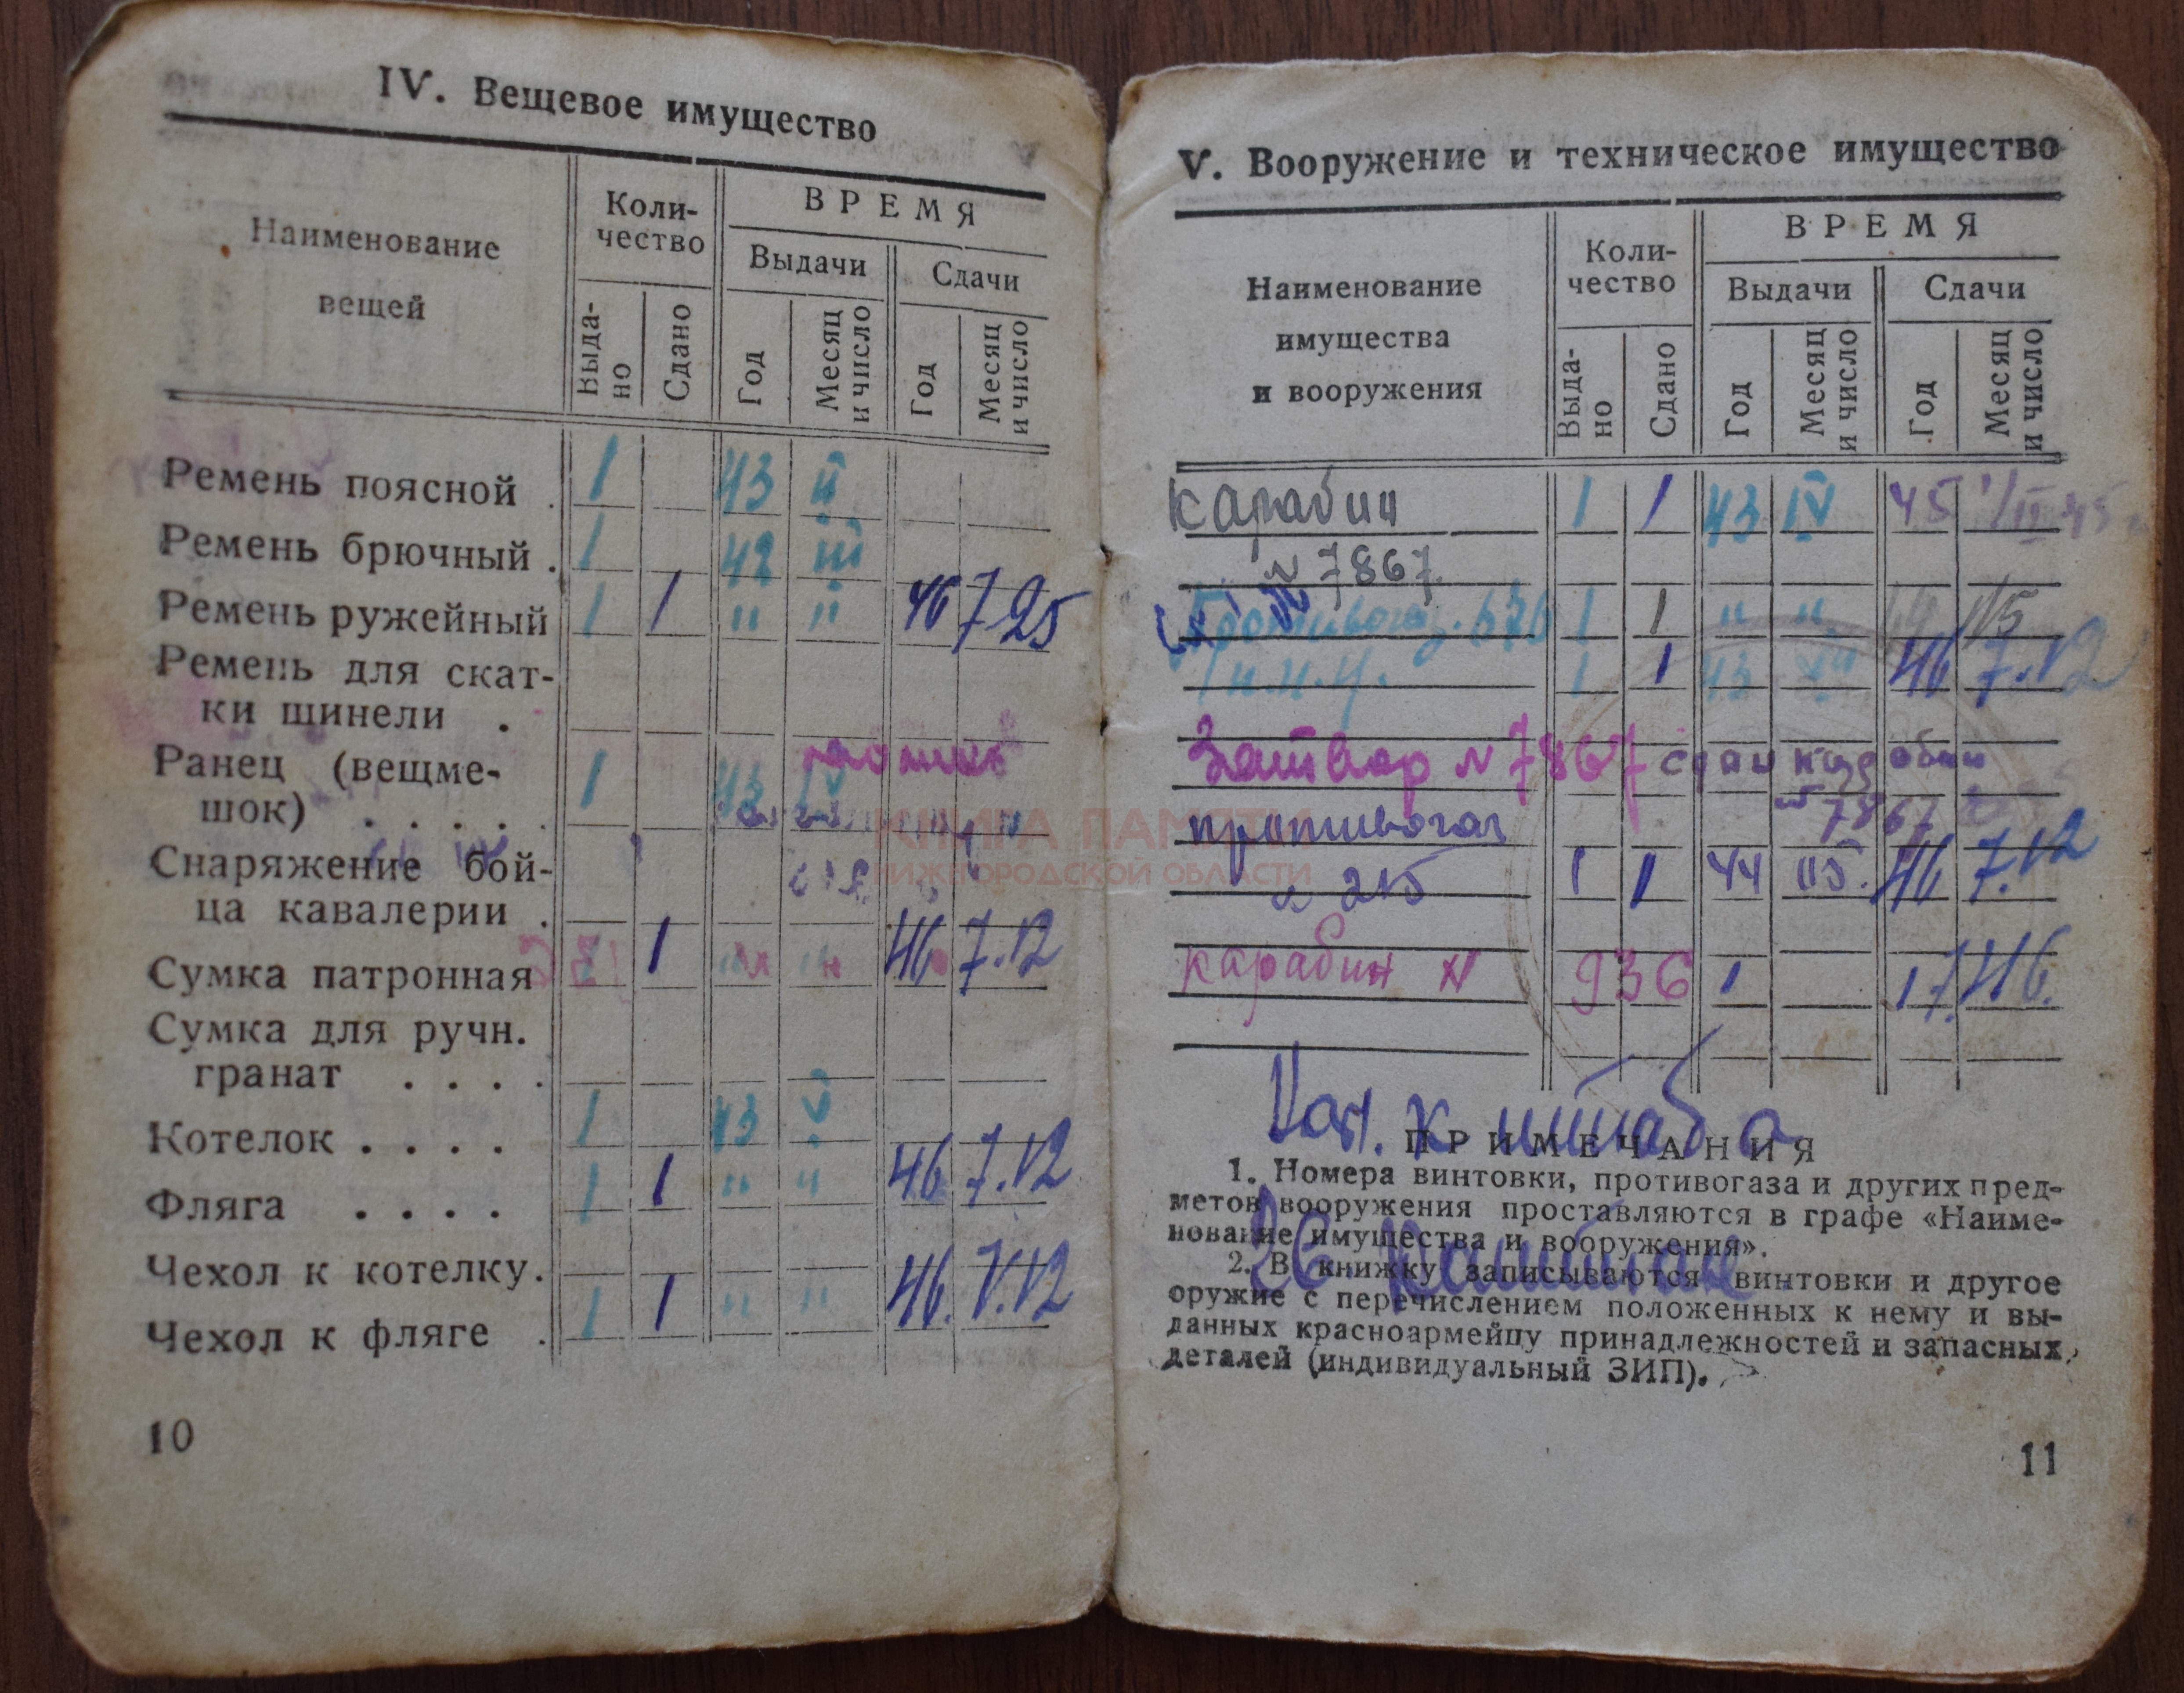 IV. Вещевое имущество
Наименование
вещей
Коли-
чество
ВРЕМЯ
Выдачи
Сдачи
Выда-
но
Сдано
Год
Месяц
и число
Год
Месяц
и число
Ремень поясной . 1 43 II
Ремень брючный . 1 42 III
Ремень ружейный 1 1 " " 46 7 25
Ремень для скат-
ки шинели .
Ранец (вещме- 1 43 IV
шок) . . . . .
Снаряжение бой-
ца кавалерии .
Сумка патронная 1 46 7.12
Сумка для ручн.
гранат . . . .
Котелок . . . . 1 43 V
Фляга . . . . 1 1 " " 46 7.12
Чехол к котелку.
Чехол к фляге . 1 1 " " 46. V.12
10
КНИГА ПАМЯТИ
НИЖЕГОРОДСКОЙ ОБЛАСТИ
V. Вооружение и техническое имущество
Наименование
имущества
и вооружения
Коли-
чество
ВРЕМЯ
Выдачи
Сдачи
Выда-
но
Сдано
Год
Месяц
и число
Год
Месяц
и число
Карабин 1 1 43 IV 45 1/II 45
№ 7867
Противогаз. 1 1 " " 1/5
1 1 43 46 7.12
Затвор № 7867 сдан карабин
7867
противогаз
№ 215 1 1 44 115. 46 7.12
карабин № 936 1 17.46.
Нач. штаба
Капитан
ПРИМЕЧАНИЯ
1. Номера винтовки, противогаза и других пред-
метов вооружения проставляются в графе «Наиме-
нование имущества и вооружения».
2. В книжку записываются винтовки и другое
оружие с перечислением положенных к нему и вы-
данных красноармейцу принадлежностей и запасных
деталей (индивидуальный ЗИП).
11